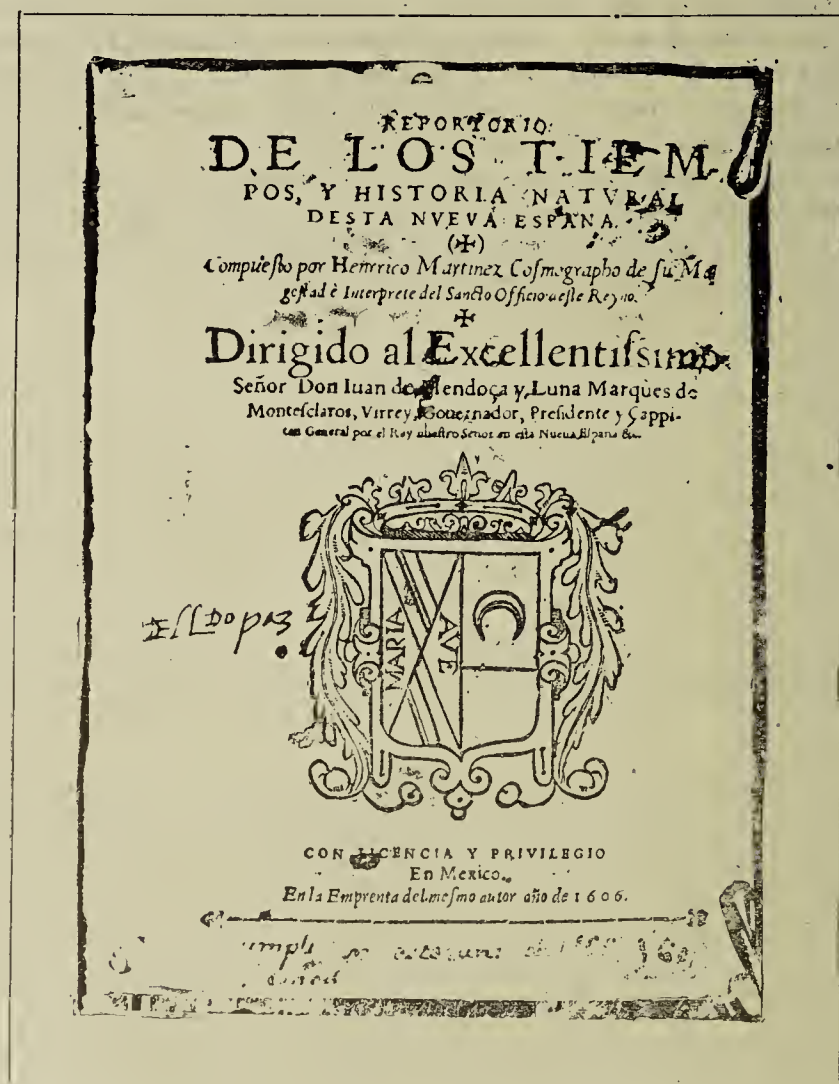 REPORTORIO
DE LOS TIEM
POS, Y HISTORIA NATVRAL
DESTA NVEVA ESPAÑA.
(✠)
Compuesto por Henrrico Martinez Cosmographo de su Ma
gestad è Interprete del Sancto Officio deste Reyno.
✠
Dirigido al Excellentissimo
Señor Don Iuan de Mendoça y Luna Marques de
Montesclaros, Virrey, Gouernador, Presidente y Cappi-
tan General por el Rey nuestro Señor en esta Nueua España &c.
MARIA
AVE
CON LICENCIA Y PRIVILEGIO
En Mexico.
En la Emprenta del mesmo autor año de 1606.